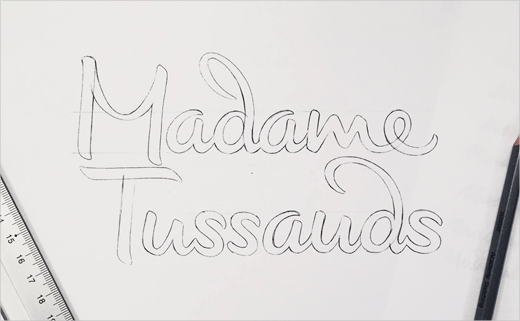 Madame
Tussauds
14
15
16
17
18
19